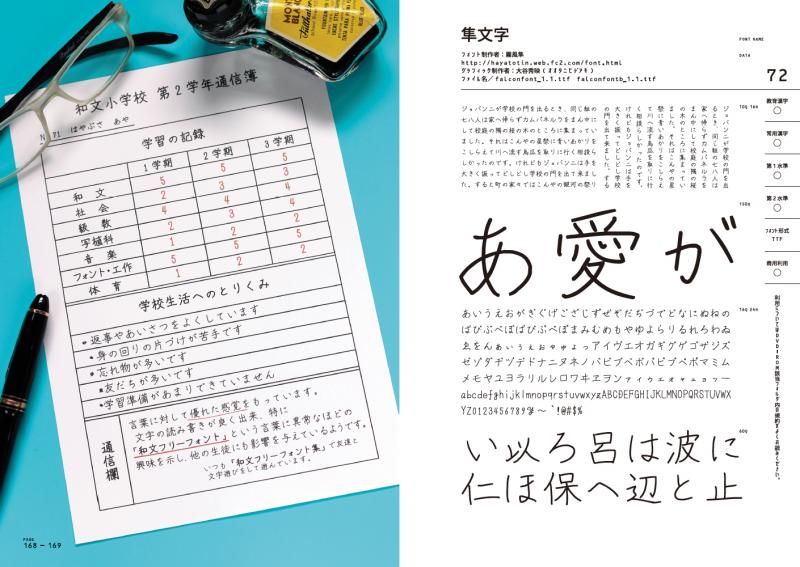 MONT
BLANC
和文小学校 第2学年通信簿
はやぶさ あや
学習の記録
1学期 2学期 3学期
和文 5 5 5
社会 2 3 3
級数 4 4 4
写植科 2 3 4
音楽 1 2 2
フォント・工作 5 5 5
体育 1 2 2
学校生活へのとりくみ
・返事やあいさつをよくしています
・身の回りの片づけが苦手です
・忘れ物が多いです
・友だちが多いです
・学習準備があまりできていません
通信欄
言葉に対して優れた感覚をもっています。
文字の読み書きが良く出来、特に
「和文フリーフォント」という言葉に異常なほどの
興味を示し、他の生徒にも影響を与えているようです。
いつも「和文フリーフォント集」で友達と
文字遊びをして遊んでいます。
PAGE
168 — 169
隼文字
フォント制作者：羅風隼
http://hayatotin.web.fc2.com/font.html
グラフィック制作者：大谷秀映（オオタニヒデアキ）
ファイル名／falconfont_1.1.ttf falconfontb_1.1.ttf
FONT NAME
DATA
72
教育漢字
○
常用漢字
○
第1水準
○
第2水準
○
フォント形式
TTF
商用利用
○
10Q 16H
ジョバンニが学校の門を出るとき、同じ組の
七八人は家へ帰らずカムパネルラをまん中に
して校庭の隅の桜の木のところに集まってい
ました。それはこんやの星祭に青いあかりを
こしらえて川へ流す烏瓜を取りに行く相談ら
しかったのです。けれどもジョバンニは手を
大きく振ってどしどし学校の門を出て来まし
た。すると町の家々ではこんやの銀河の祭り
ジョバンニが学校の門を出
るとき、同じ組の七八人は
家へ帰らずカムパネルラを
まん中にして校庭の隅の桜
の木のところに集まってい
ました。それはこんやの星
祭に青いあかりをこしらえ
て川へ流す烏瓜を取りに行
く相談らしかったのです。
けれどもジョバンニは手を
大きく振ってどしどし学校
の門を出て来ました。する
150Q
あ愛が
16Q 24H
あいうえおがぎぐげござじずぜぞだぢづでどなにぬねの
ばびぶべぼぱぴぷぺぽまみむめもやゆよらりるれろわゐ
ゑをんぁぃぅぇぉゃゅょっアイヴエオガギグゲゴザジズ
ゼゾダヂヅデドナニヌネノバビブベボパピプペポマミム
メモヤユヨラリルレロワヰヱヲンァィゥェォャュョッー
abcdefghijklmnopqrstuvwxyzABCDEFGHIJKLMNOPQRSTUVWX
60Q
い以ろ呂は波に
仁ほ保へ辺と止